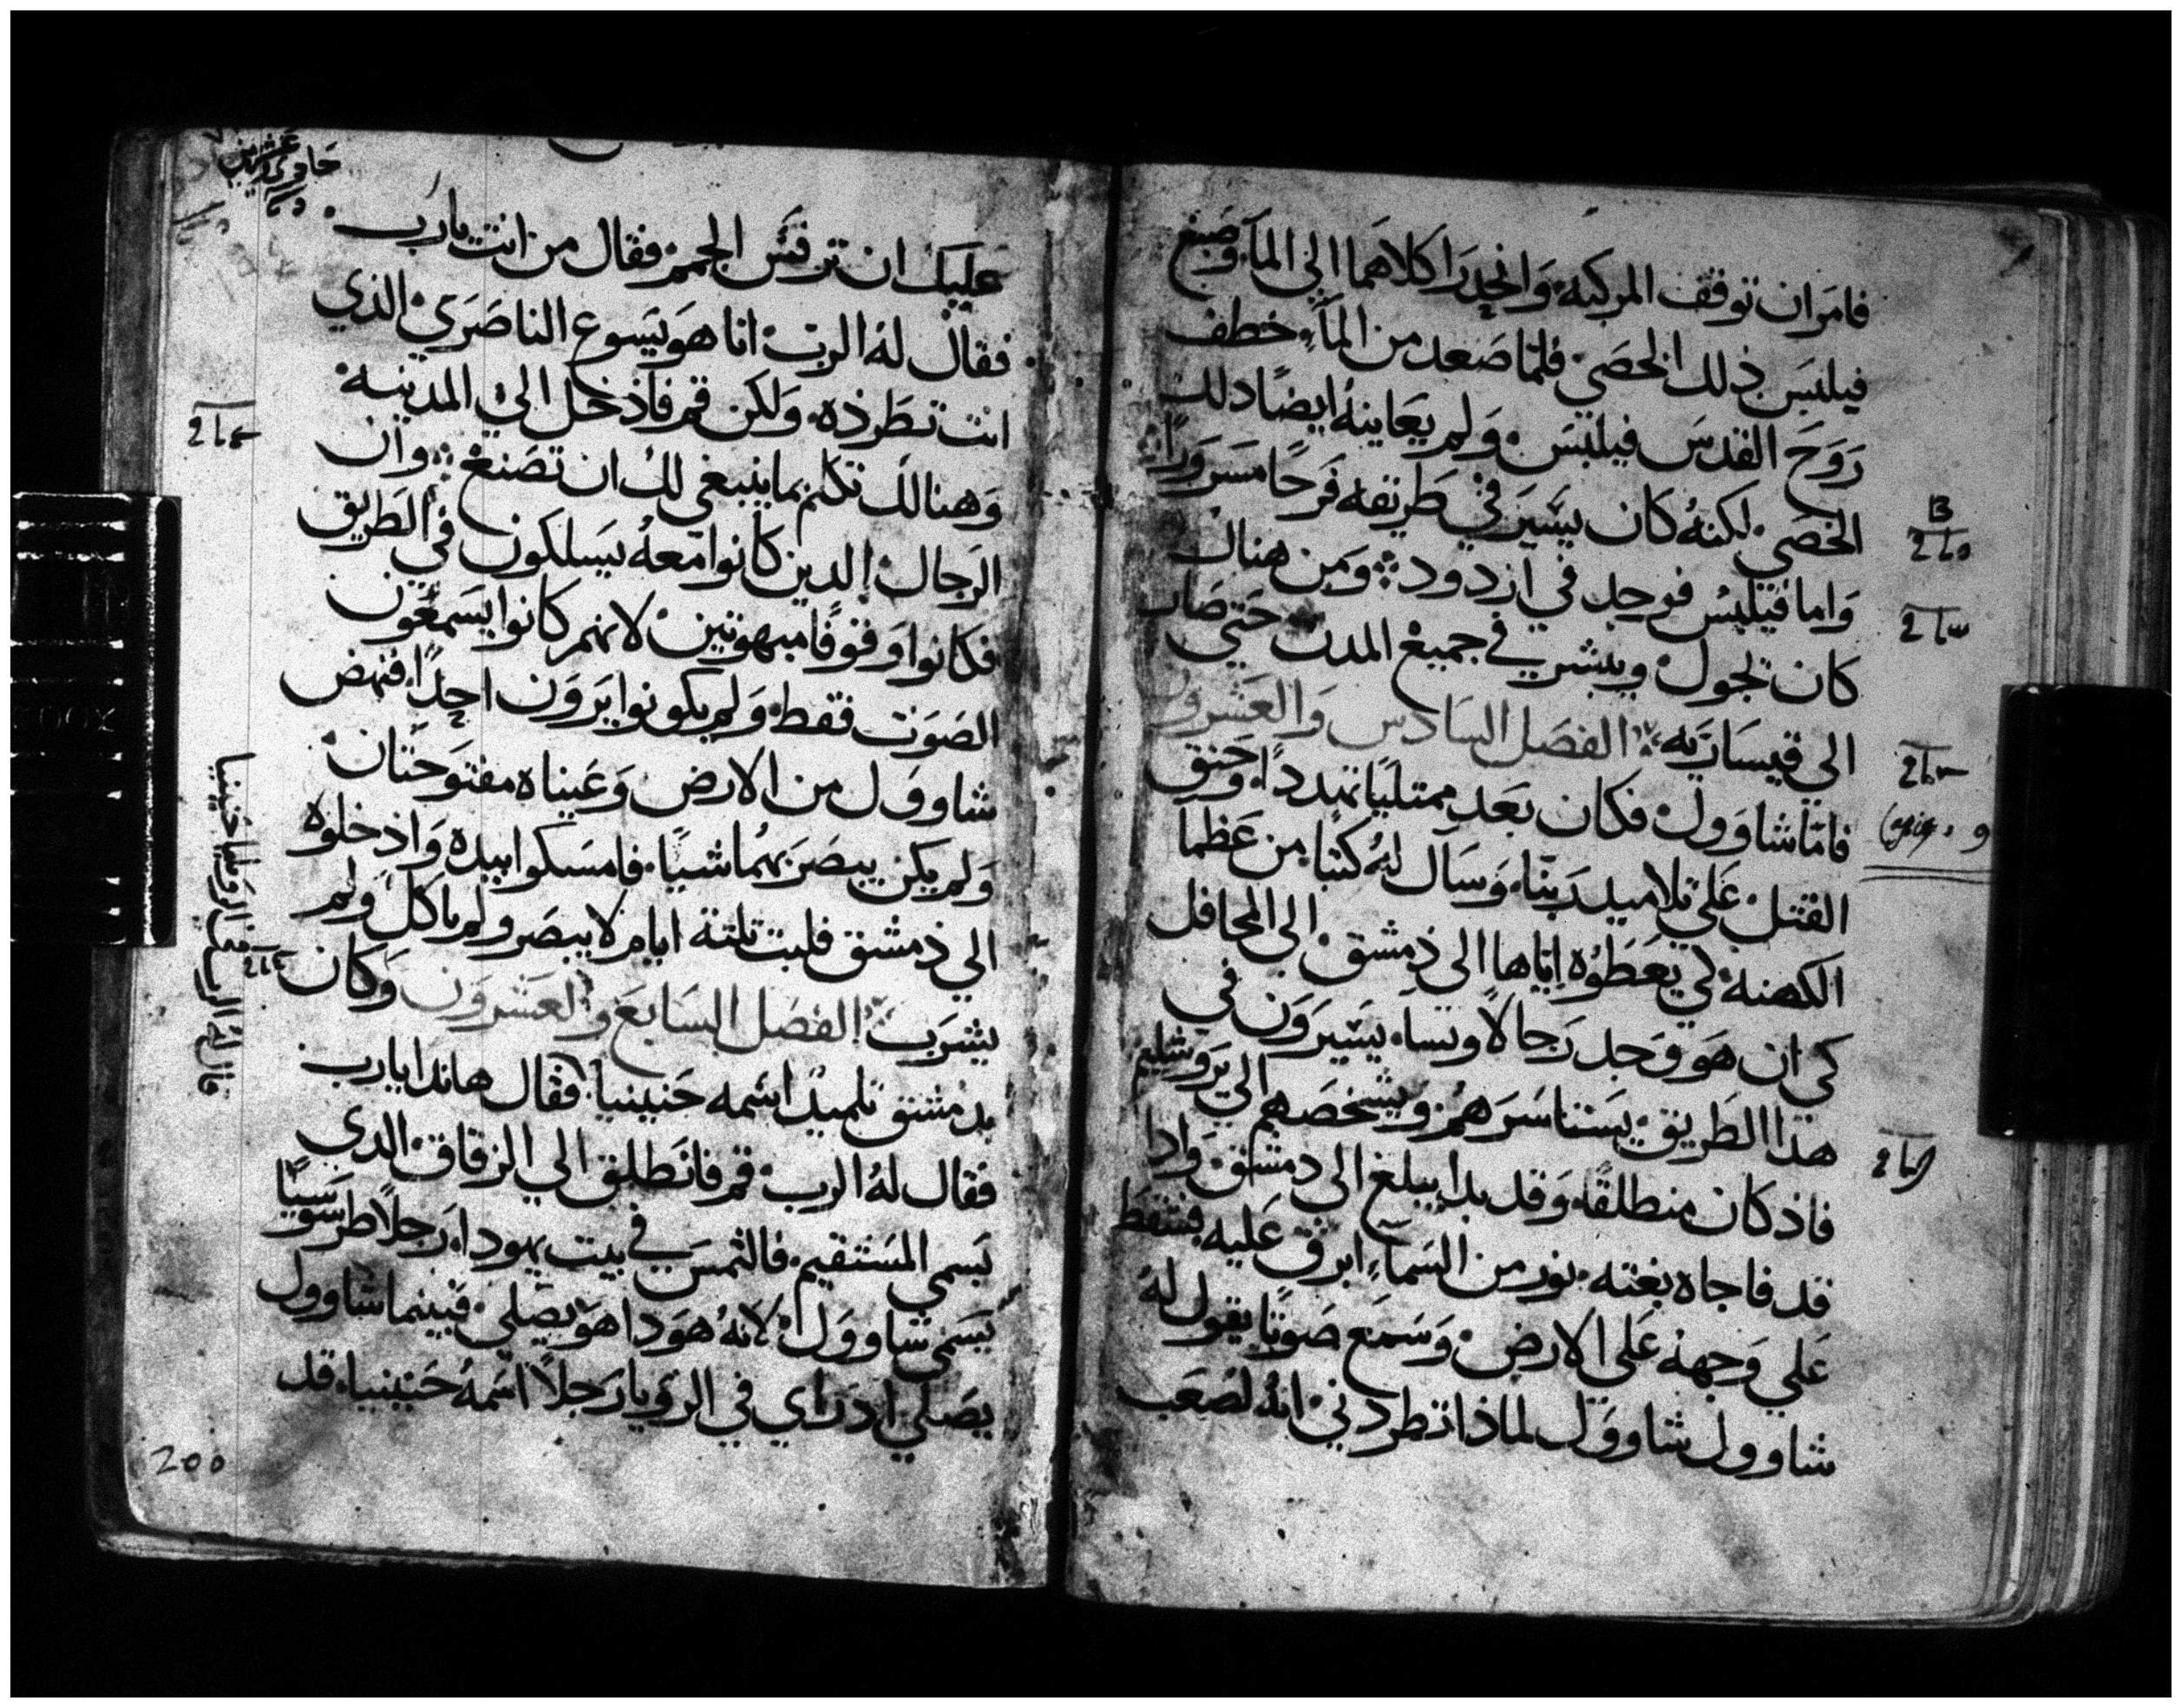 فامر ان توقف المركبه وانحدرا كلاهما الي المآ وصبغ
فيلبس ذلك الخصي فلما صعد من المآء خطف
روح القدس فيلبس ولم يعاينه ايضا دلك
الخصي لكنه كان يسير في طريقه فرحا مسرورا
واما فيلبس فوجد في ازدود ومن هناك
كان تجول ويبشر في جميع المدن حتي صار
الي قيساريه الفصل السادس والعشرون
فاما شاوول فكان بعد ممتليا تهددا وحنق
القتل علي تلاميد ربنا وسآل له كتبا من عظما
الكهنه لكي يعطوه اياها الي دمشق الي المحافل
كي ان هو وجد رجالا ونسآء يسيرون في
هذا الطريق يستاسرهم ويشخصهم الي يروشليم
فاذ كان منطلقا وقد بدا يبلغ الي دمشق واذا
قد فاجاه بغته نور من السمآء ابرق عليه فسقط
علي وجهه علي الارض وسمع صوتا يقول له
شاوول شاوول لماذا تطردني انه لصعب
عليك ان ترفس الجمز فقال من انت يارب
فقال له الرب انا هو يسوع الناصري الذي
انت تطرده ولكن قم فاذخل الي المدينه
وهنالك تكلم بما ينبغي لك ان تصنع وان
الرجال الدين كانوا معه يسلكون في الطريق
فكانوا وقوفا مبهوتين لانهم كانوا يسمعون
الصوت فقط ولم يكونوا يرون احدا فنهض
شاوول من الارض وعيناه مفتوحتان
ولم يكن يبصر بهما شيا فامسكوا بيده واذخلوه
الي دمشق فلبت تلتة ايام لا يبصر ولم ياكل ولم
يشرب الفصل السابع والعشرون وكان
بدمشق تلميد اسمه حنينيا فقال هاندا يارب
فقال له الرب قم فانطلق الي الزقاق الدي
يسمي المستقيم فالتمس في بيت يهودا رجلا طرسوسيا
يسمي شاوول لانه هودا هو يصلي فبينما شاوول
يصلي اد راي في الرويا رجلا اسمه حنينيا قد
قال له الرب في الرويا يا حنينيا
200